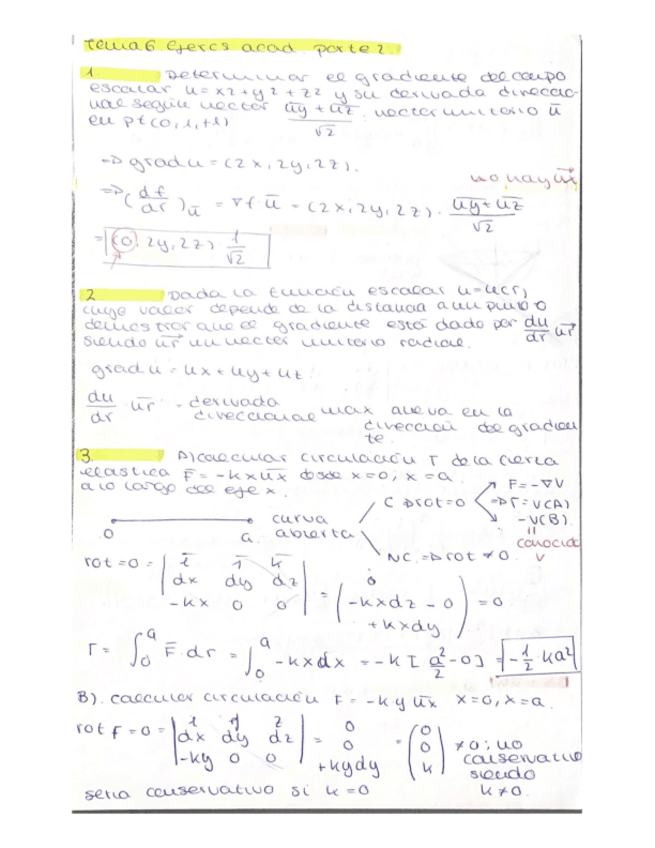 Tema 6 Ejercs acad. parte 2.
1. Determinar el gradiente del campo
escalar u = x2 + y2 + z2 y su derivada direccio-
nal según vector (uy + uz)/√2, vector unitario ū
en pt (0, 1, +1)
=> grad u = (2x, 2y, 2z).
no hay ux
=> (df/dr)ū = ∇f · ū = (2x, 2y, 2z) · (uy + uz)/√2
= (0, 2y, 2z) · 1/√2
2. Dada la función escalar u = u(r),
cuyo valor depende de la distancia a un punto O
demostrar que el gradiente está dado por du/dr ur
siendo ur un vector unitario radial.
grad u = ux + uy + uz.
du/dr ur = derivada
direccional max que va en la
dirección del gradien
te.
3. A) Calcular circulación Γ de la fuerza
elástica F = -kx ux desde x=0, x=a.
a lo largo del eje x.
0 a
curva
abierta
C => rot = 0
F = -∇V
=> Γ = V(A)
- V(B)
conocida
V
NC => rot ≠ 0
rot = 0 = | i j k |
| dx dy dz |
| -kx 0 0 |
= ( 0
-kxdz - 0
+ kxdy ) = 0
Γ = ∫0a F · dr = ∫0a -kxdx = -k [a²/2 - 0] = -1/2 ka²
B). Calcular circulación F = -ky ux x=0, x=a.
rot F = 0 = | i j z |
| dx dy dz |
| -ky 0 0 |
= 0
0
+kydy
= (0
0
k) ≠ 0; no
conservativo
siendo
k ≠ 0.
sería conservativo si k = 0